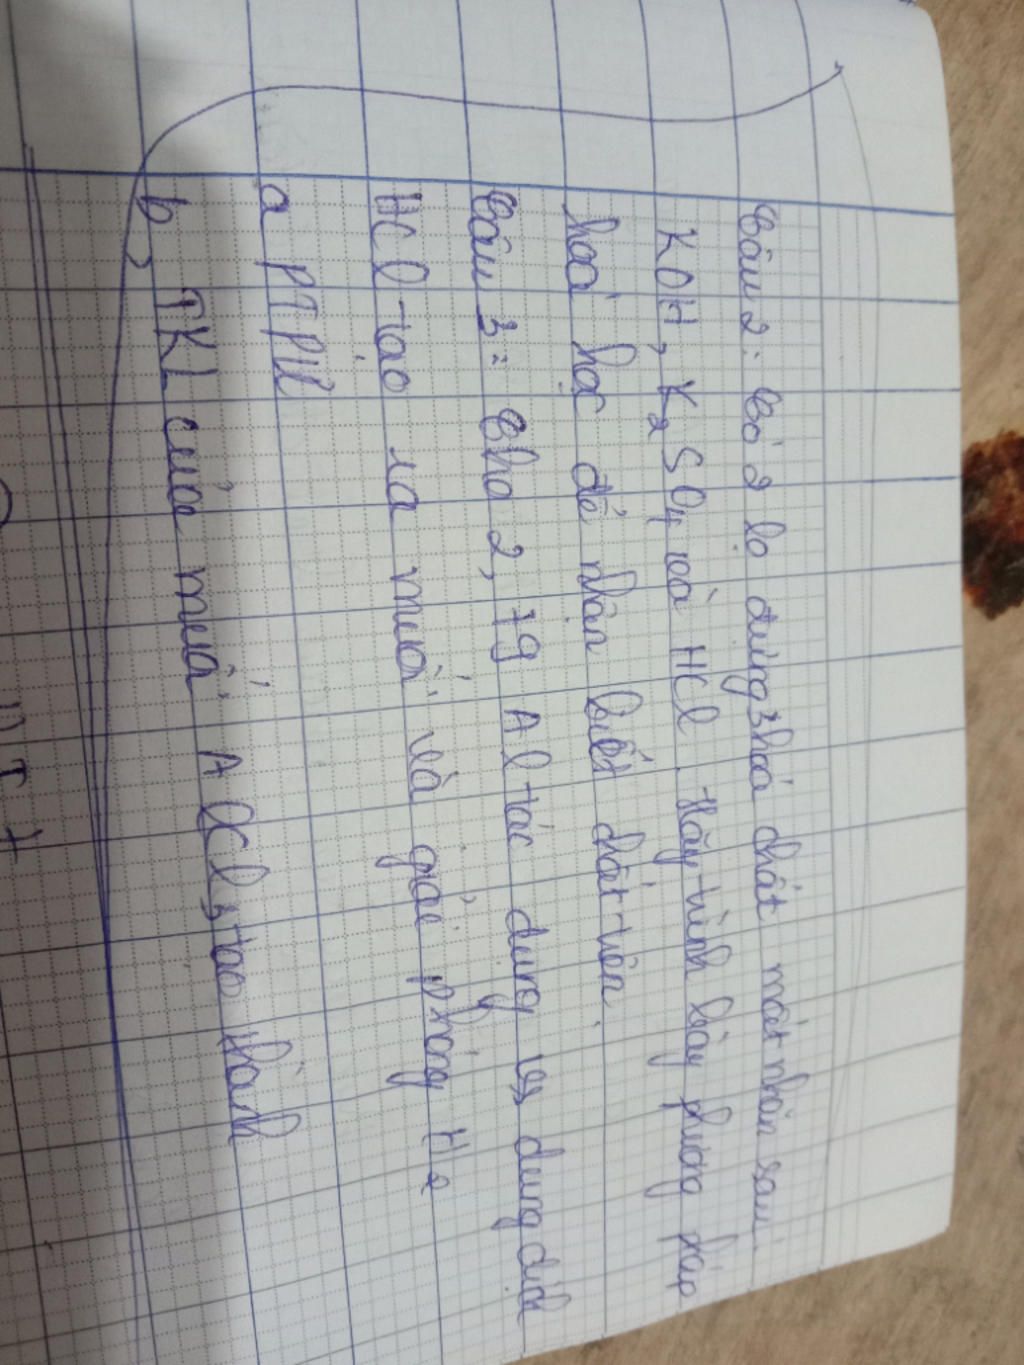 Câu 2: Có 3 lọ đựng 3 hoá chất mất nhãn sau:
KOH, K2SO4 và HCl. Hãy trình bày phương pháp
hoá học để nhận biết chất trên.
Câu 3: Cho 2,7g Al tác dụng vs dung dịch
HCl tạo ra muối và giải phóng H2
a PTPU
b, TKL của muối AlCl3 tạo thành